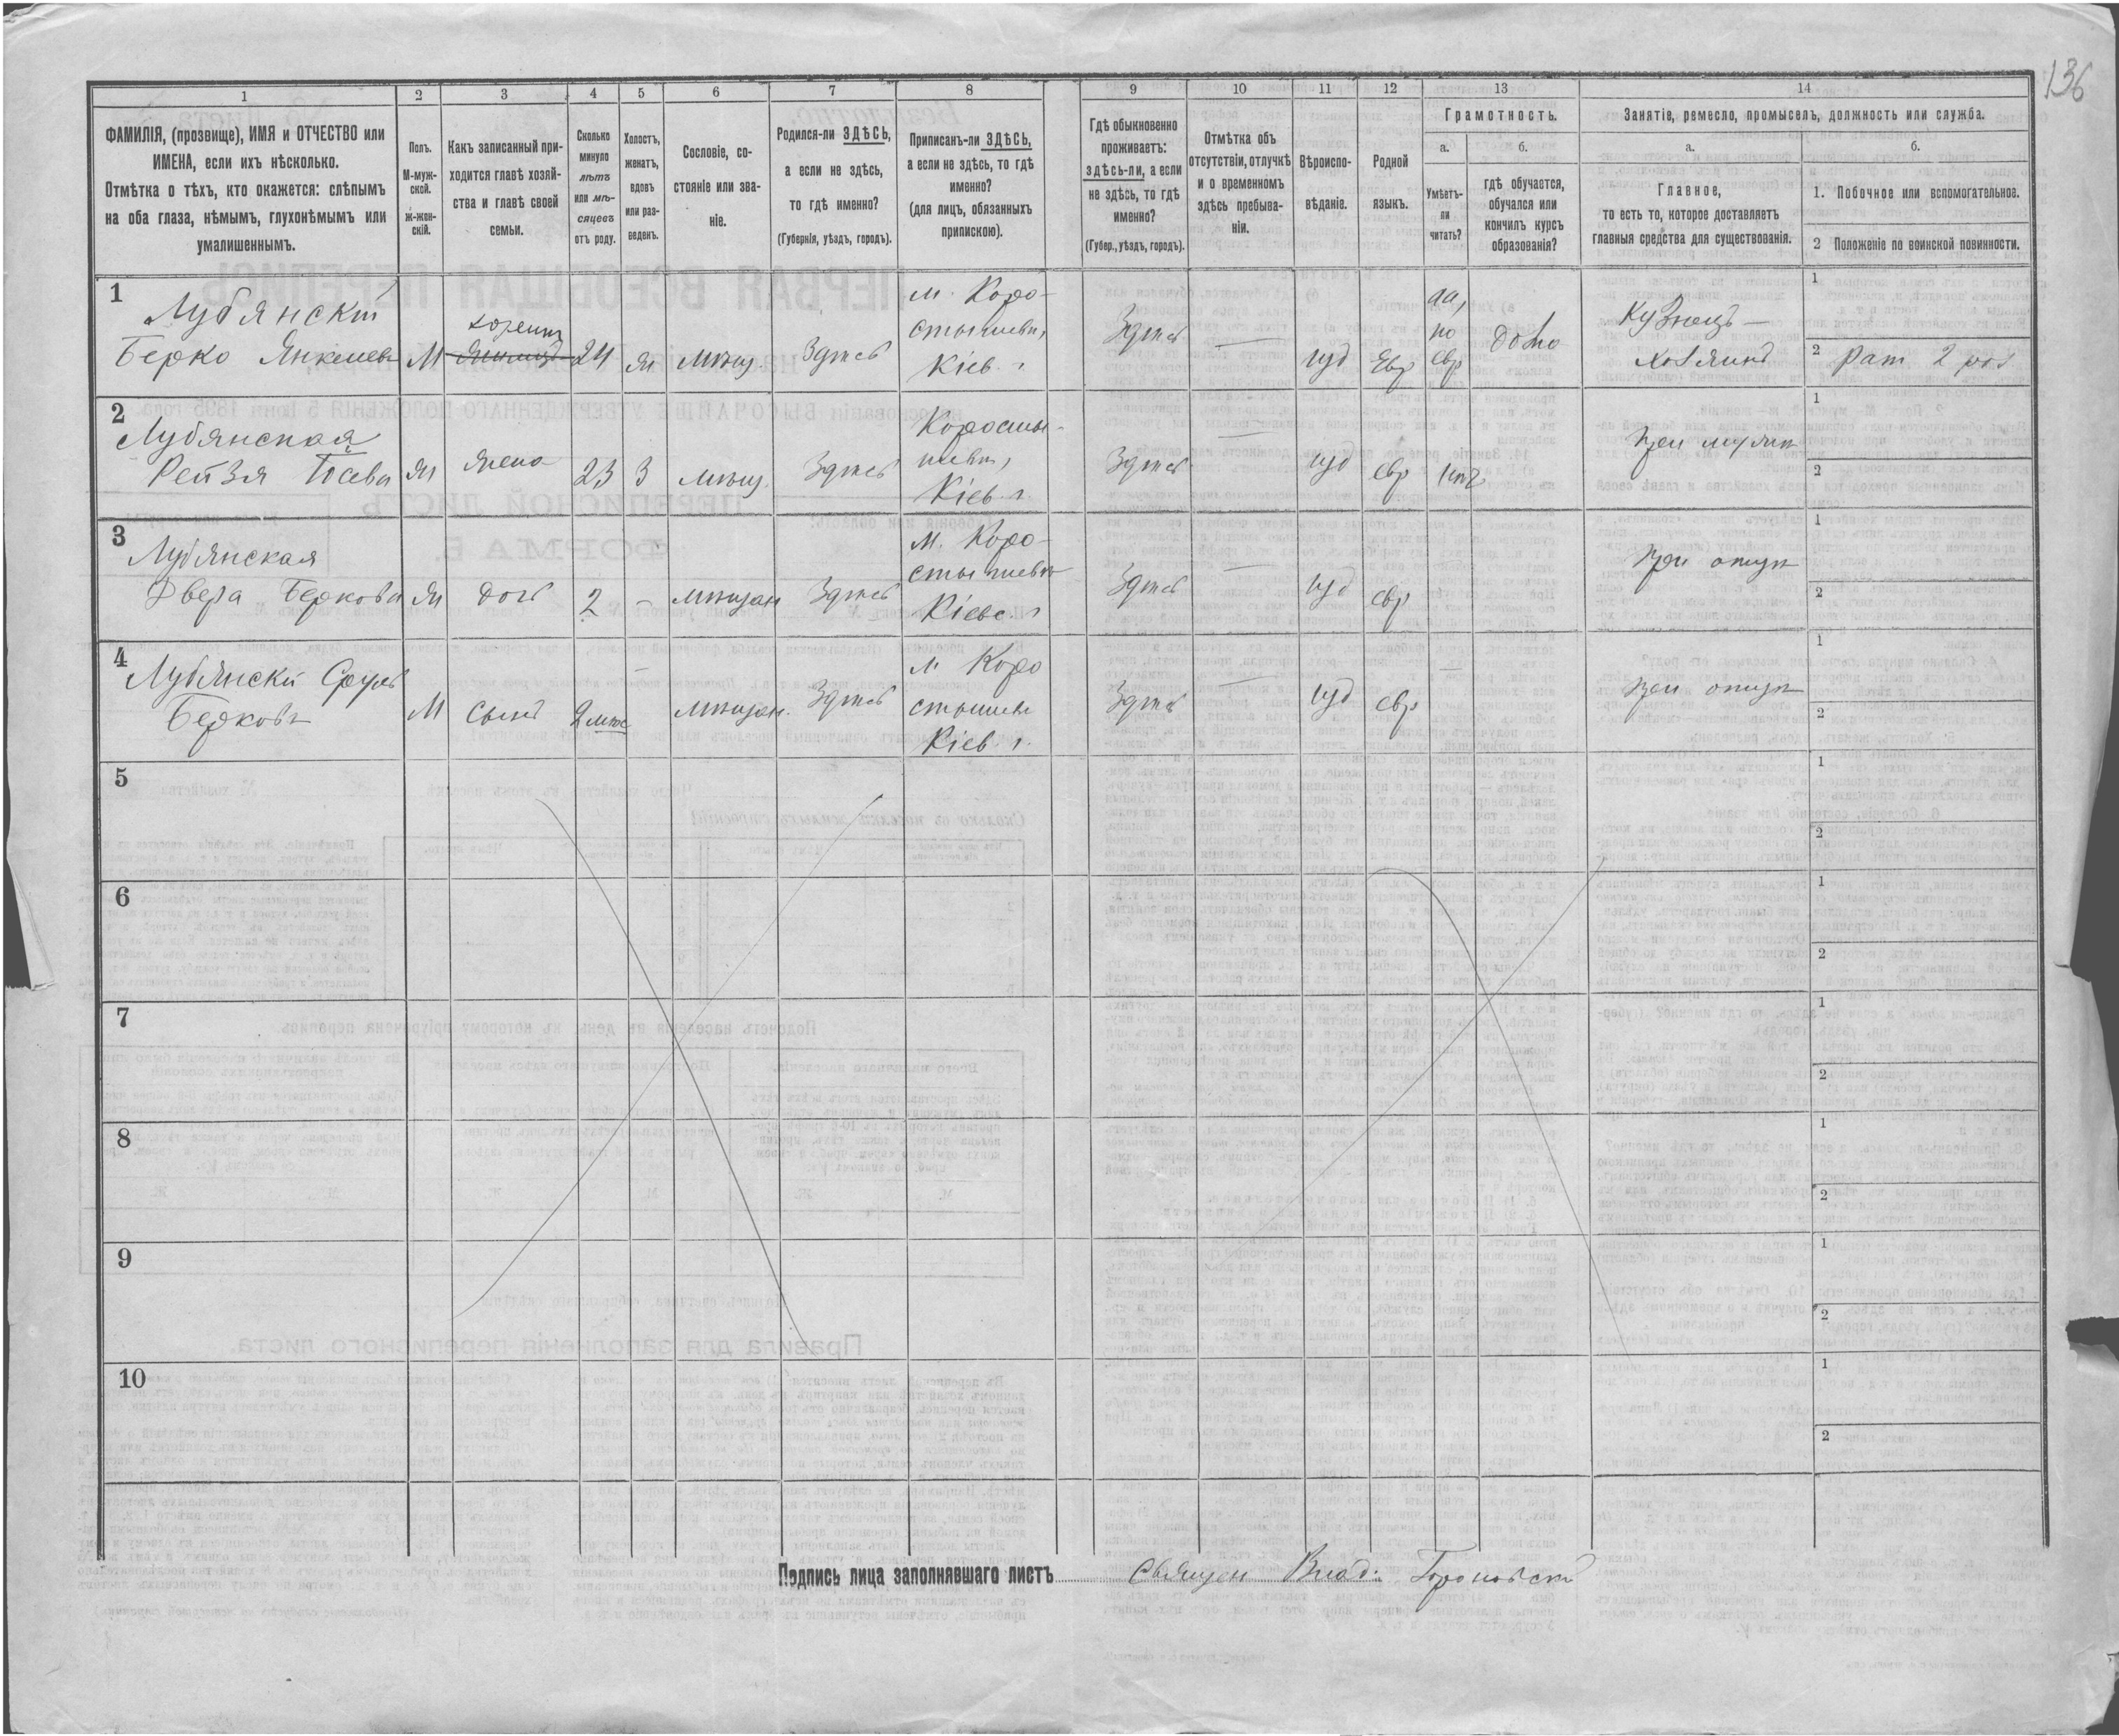 136
1
2
3
4
5
6
7
8
9
10
11
12
13
14
ФАМИЛІЯ, (прозвище), ИМЯ и ОТЧЕСТВО или
ИМЕНА, если ихъ нѣсколько.
Отмѣтка о тѣхъ, кто окажется: слѣпымъ
на оба глаза, нѣмымъ, глухонѣмымъ или
умалишеннымъ.
Полъ.
М-муж-
ской.
ж-жен-
скій.
Какъ записанный при-
ходится главѣ хозяй-
ства и главѣ своей
семьи.
Сколько
минуло
лѣтъ
или мѣ-
сяцевъ
отъ роду.
Холостъ,
женатъ,
вдовъ
или раз-
веденъ.
Сословіе, со-
стояніе или зва-
ніе.
Родился-ли ЗДѢСЬ,
а если не здѣсь,
то гдѣ именно?
(Губернія, уѣздъ, городъ).
Приписанъ-ли ЗДѢСЬ,
а если не здѣсь, то гдѣ
именно?
(для лицъ, обязанныхъ
припискою).
Гдѣ обыкновенно
проживаетъ:
здѣсь-ли, а если
не здѣсь, то гдѣ
именно?
(Губер., уѣздъ, городъ).
Отмѣтка объ
отсутствіи, отлучкѣ
и о временномъ
здѣсь пребыва-
ніи.
Вѣроиспо-
вѣданіе.
Родной
языкъ.
Грамотность.
а.
Умѣетъ-
ли
читать?
б.
гдѣ обучается,
обучался или
кончилъ курсъ
образованія?
Занятіе, ремесло, промыселъ, должность или служба.
а.
Главное,
то есть то, которое доставляетъ
главныя средства для существованія.
б.
1. Побочное или вспомогательное.
2 Положеніе по воинской повинности.
1
Лубянскій
Берко Янкелев
М
хозяинъ
24
ж
мѣщ.
Здѣсь
м. Коро-
стышев,
Кіев. г
Здѣсь
—
іуд
Евр
да,
по
евр
дома
Кузнецъ —
хозяинъ
1
2 рат 2 раз
2
Лубянская
Рейзя Іосева
ж
жена
23
З
мѣщ.
Здѣсь
Коросты-
шев,
Кіев. г.
Здѣсь
—
іуд
евр
нѣт
при мужѣ
1
2
3
Лубянская
Двера Беркова
ж
дочь
2
—
мѣщан
Здѣсь
м. Коро-
стышев
Кіевс. г
Здѣсь
—
іуд
евр
при отцѣ
1
2
4
Лубянскій Сруль
Берковъ
М
сынъ
2 мѣс
—
мѣщан.
Здѣсь
м Коро
стышев
Кіев. г.
Здѣсь
—
іуд
евр
при отцѣ
1
2
5
1
2
6
1
2
7
1
2
8
1
2
9
1
2
10
1
2
Подпись лица заполнявшаго листъ Священ Влад: